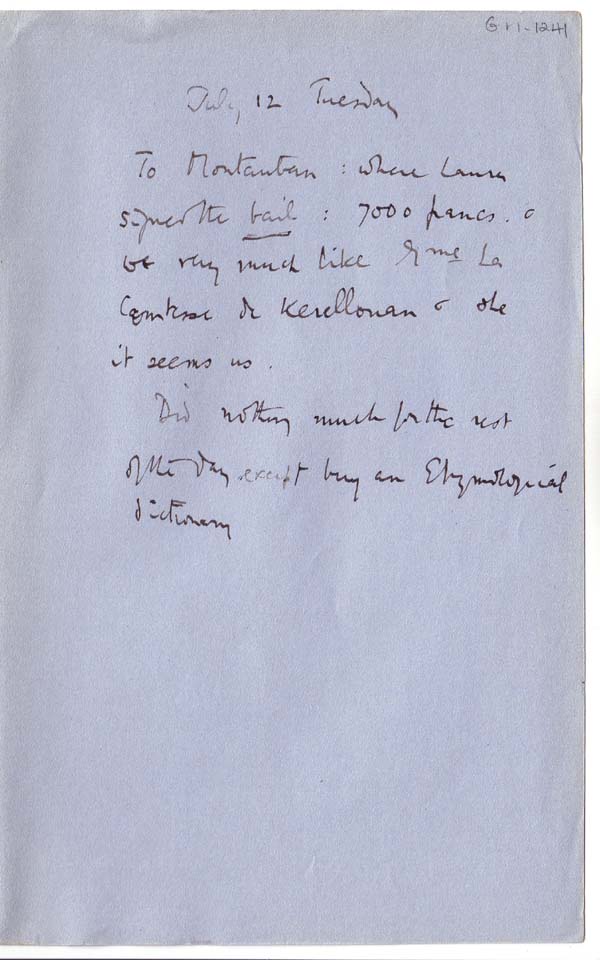 G11-1241
July 12 Tuesday
To Montauban : where Laura
signed the bail : 7000 francs. &
we very much like Mme La
Comtesse de Kerellonan & she
it seems us.
Did nothing much for the rest
of the day except buy an Etymological
dictionary